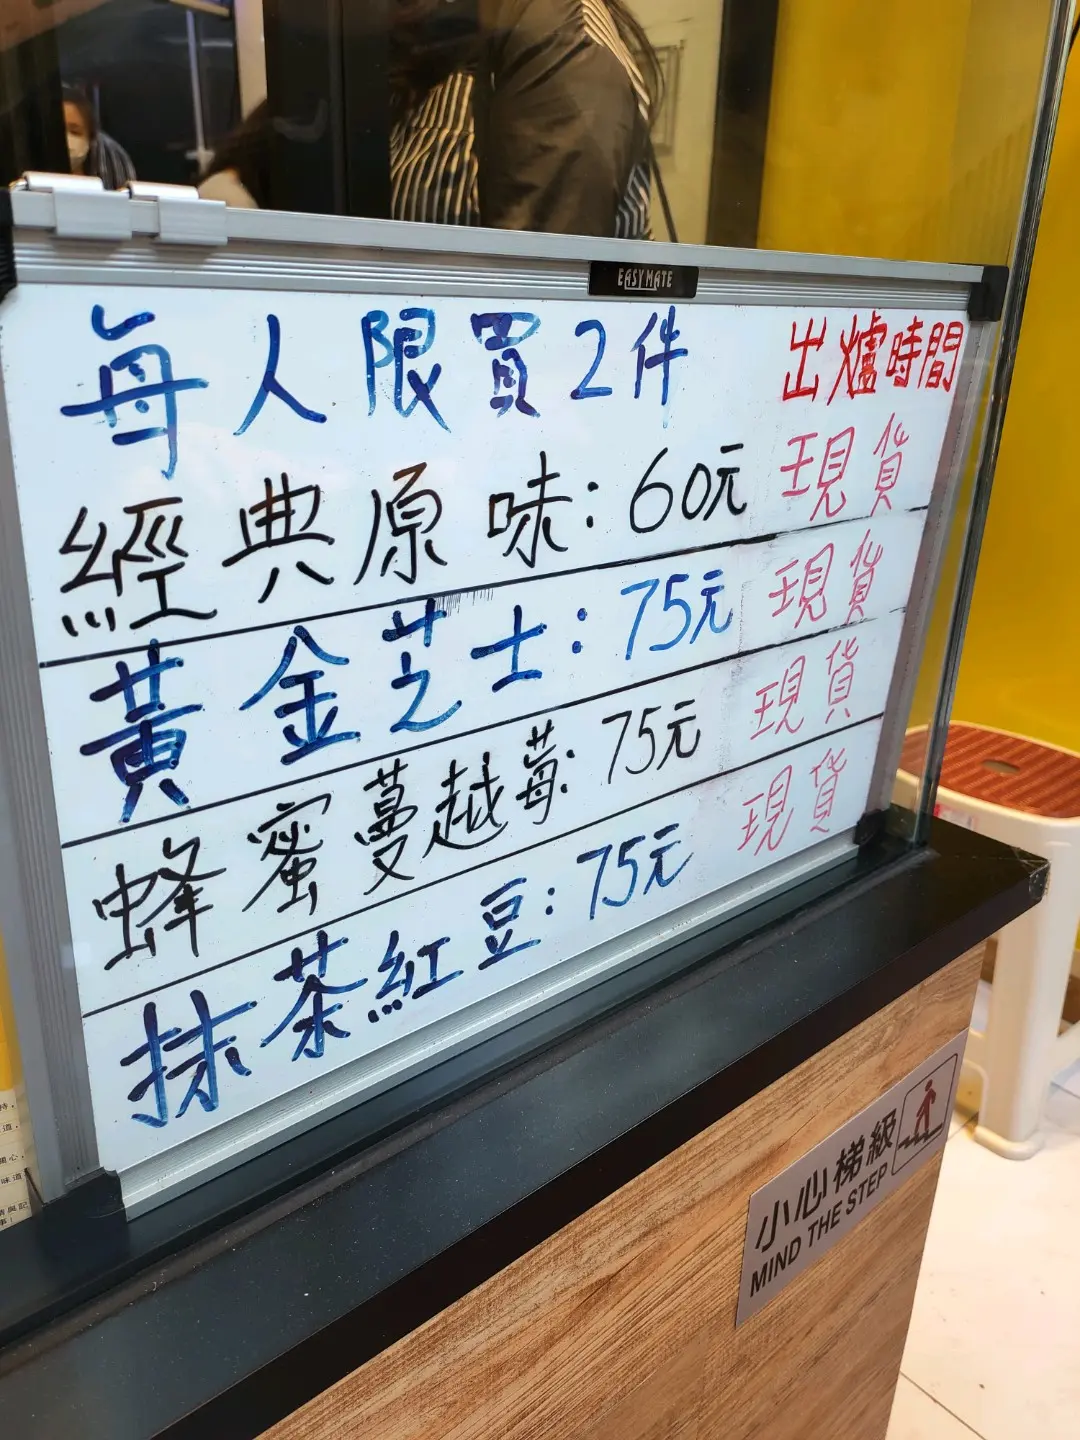 EASYMATE
每人限買2件 出爐時間
經典原味：60元 現貨
黃金芝士：75元 現貨
蜂蜜蔓越莓：75元 現貨
抹茶紅豆：75元 現貨
小心梯級
MIND THE STEP